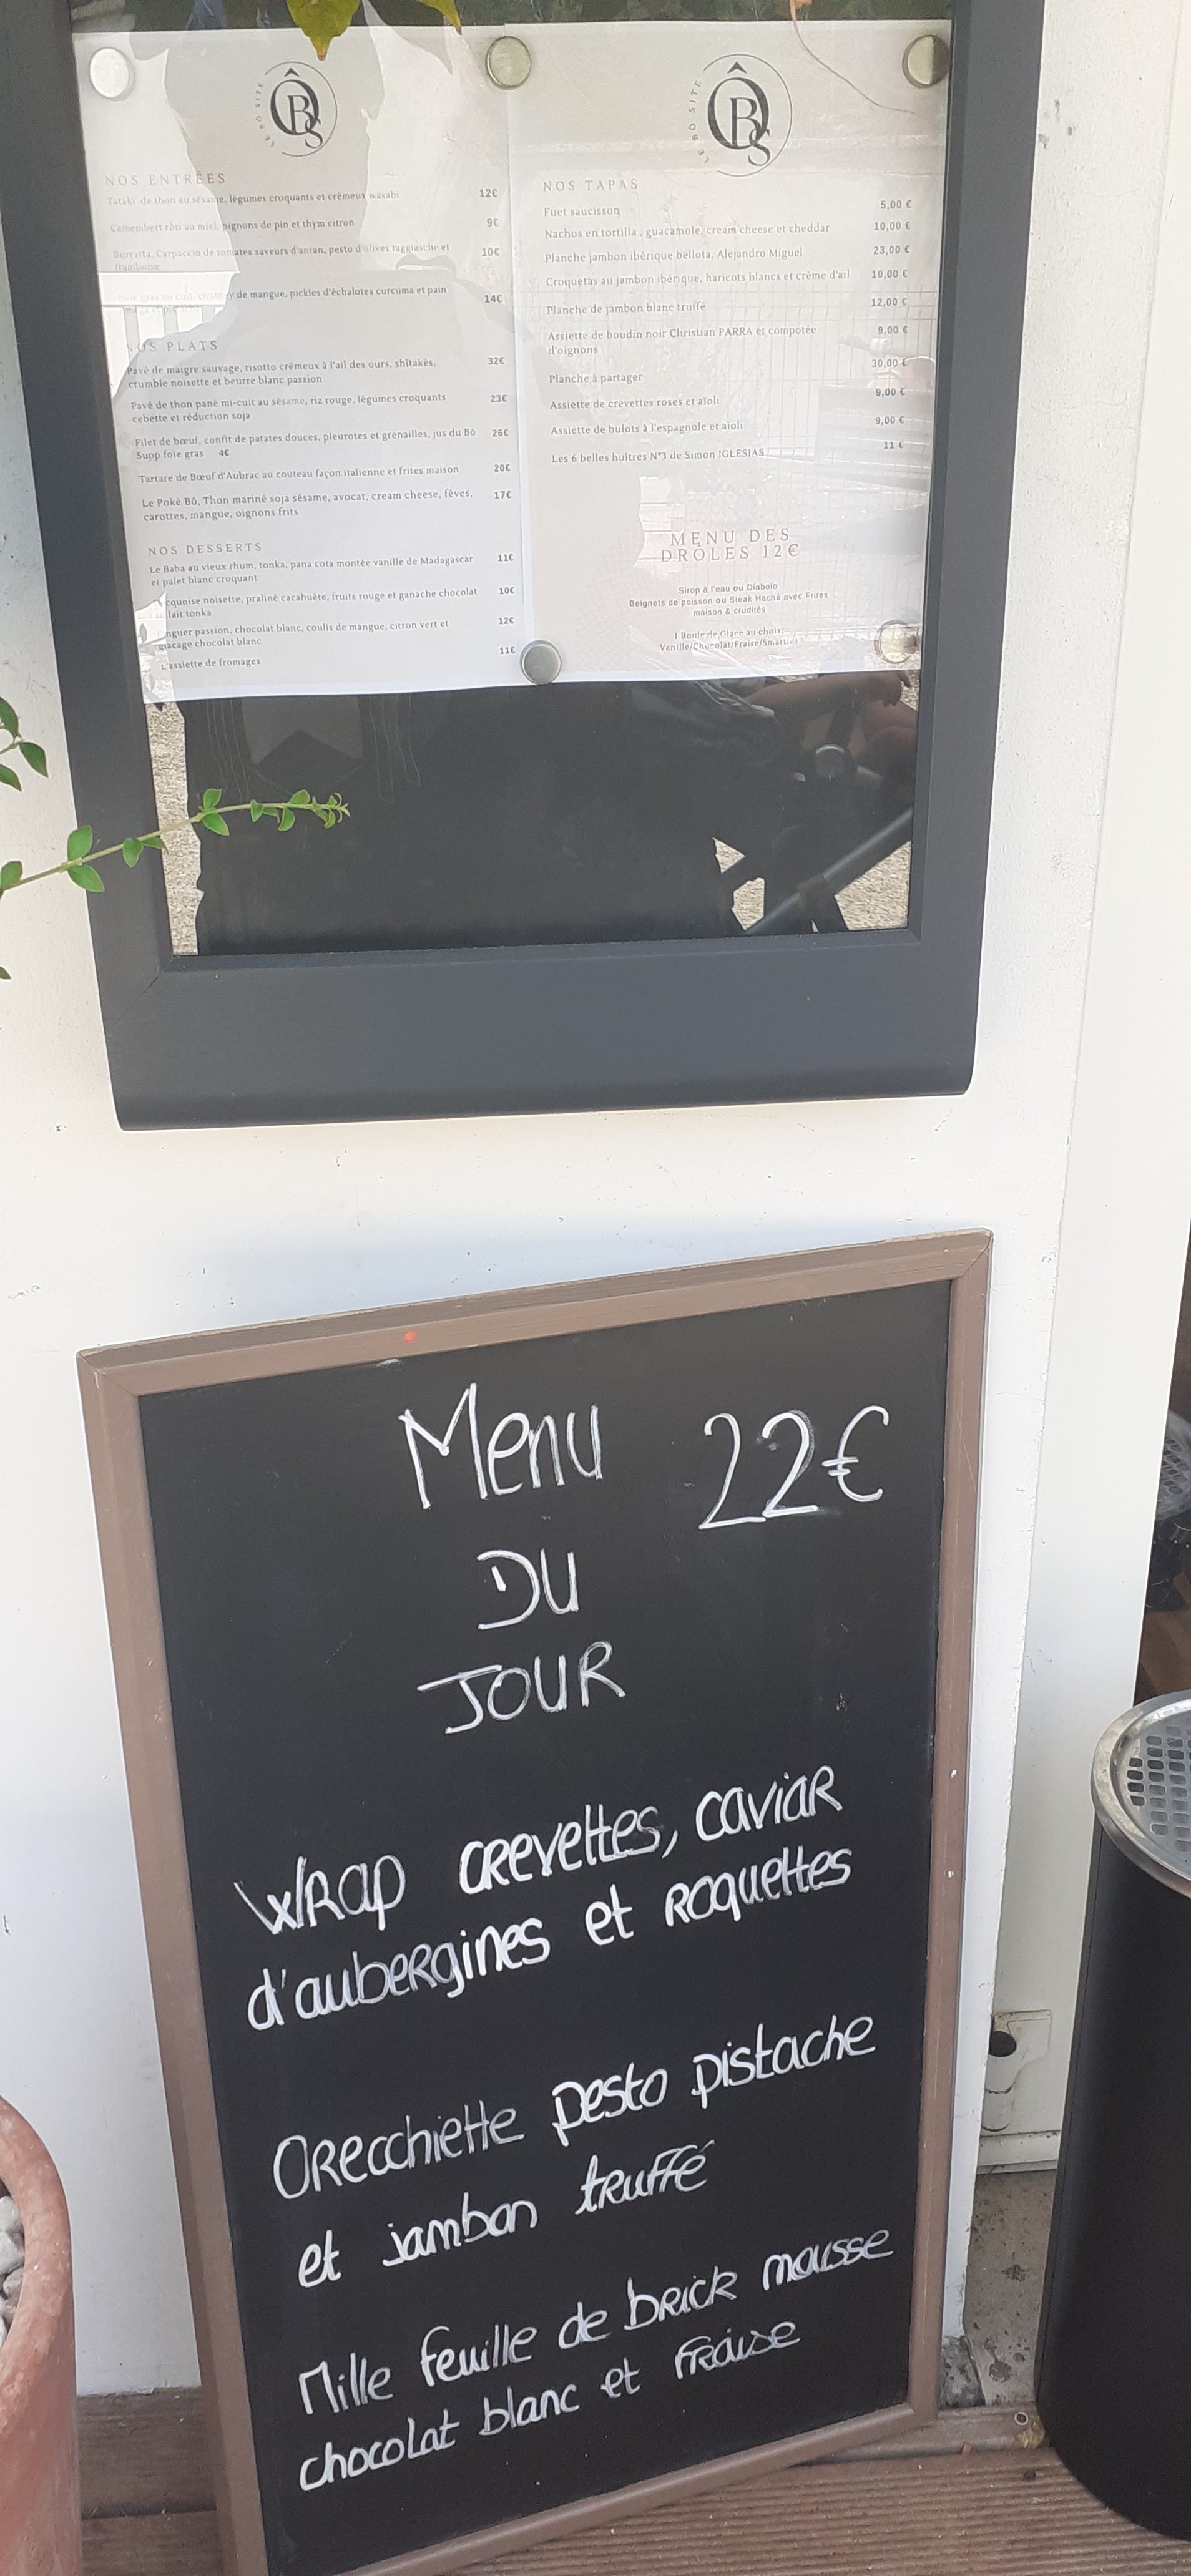 LE BÔ SITE
ÔBS
NOS ENTRÉES
Tataki de thon au sésame, légumes croquants et crémeux wasabi 12€
Camembert rôti au miel, pignons de pin et thym citron 9€
Burratta, Carpaccio de tomates saveurs d'antan, pesto d'olives taggiasche et 10€
framboise
Foie gras mi-cuit, chutney de mangue, pickles d'échalotes curcuma et pain 14€
NOS PLATS
Pavé de maigre sauvage, risotto crémeux à l'ail des ours, shitakés, 32€
crumble noisette et beurre blanc passion
Pavé de thon pané mi-cuit au sésame, riz rouge, légumes croquants 23€
cebette et réduction soja
Filet de bœuf, confit de patates douces, pleurotes et grenailles, jus du Bô 26€
Supp foie gras 4€
Tartare de Bœuf d'Aubrac au couteau façon italienne et frites maison 20€
Le Poké Bô, Thon mariné soja sésame, avocat, cream cheese, fèves, 17€
carottes, mangue, oignons frits
NOS DESSERTS
Le Baba au vieux rhum, tonka, pana cota montée vanille de Madagascar 11€
et palet blanc croquant
cquoise noisette, praliné cacahuète, fruits rouge et ganache chocolat 10€
lait tonka
nguer passion, chocolat blanc, coulis de mangue, citron vert et 12€
glaçage chocolat blanc
L'assiette de fromages 11€
LE BÔ SITE
ÔBS
NOS TAPAS
Fuet saucisson 5,00 €
Nachos en tortilla , guacamole, cream cheese et cheddar 10,00 €
Planche jambon ibérique bellota, Alejandro Miguel 23,00 €
Croquetas au jambon ibérique, haricots blancs et crème d'ail 10,00 €
Planche de jambon blanc truffé 12,00 €
Assiette de boudin noir Christian PARRA et compotée 9,00 €
d'oignons
Planche à partager 30,00 €
Assiette de crevettes roses et aïoli 9,00 €
Assiette de bulots à l'espagnole et aïoli 9,00 €
Les 6 belles huîtres N°3 de Simon IGLESIAS 11 €
MENU DES
DRÔLES 12€
Sirop à l'eau ou Diabolo
Beignets de poisson ou Steak Haché avec Frites
maison & crudités
1 Boule de Glace au choix:
Vanille/Chocolat/Fraise/Smarties
Menu 22€
DU
JOUR
Wrap crevettes, caviar
d'aubergines et roquettes
Orecchiette pesto pistache
et jambon truffé
Mille feuille de brick mousse
chocolat blanc et fraise